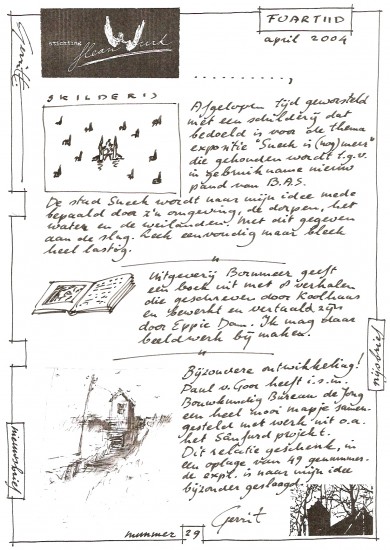 stichting
FOARTIID
april 2004
Gerrit
. . . . . . . . . . . ,
SKILDERIJ
Afgelopen tijd geworsteld
met een schilderij dat
bedoeld is voor de thema
expositie "Sneek is (nog) meer"
die gehouden wordt t.g.v.
in gebruik name nieuw
pand van B.A.S.
De stad Sneek wordt naar mijn idee mede
bepaald door z'n omgeving, de dorpen, het
water en de weilanden. Met dit gegeven
aan de slag. Leek eenvoudig maar bleek
heel lastig.
Uitgeverij Bornmeer geeft
een boek uit met 8 verhalen
die geschreven door Koolhaas
en bewerkt en vertaald zijn
door Eppie Dam. Ik mag daar
beeldwerk bij maken.
Bijzondere ontwikkeling!
Paul v. Goor heeft i.s.m.
Bouwkundig Bureau de Jong
een heel mooi mapje samen-
gesteld met werk uit o.a.
het Sânfurd projekt.
Dit relatie geschenk, in
een oplage van 49 genummer-
de expl. is naar mijn idee
bijzonder geslaagd.
Gerrit
nijsbrief
nieuwsbrief
nummer 29